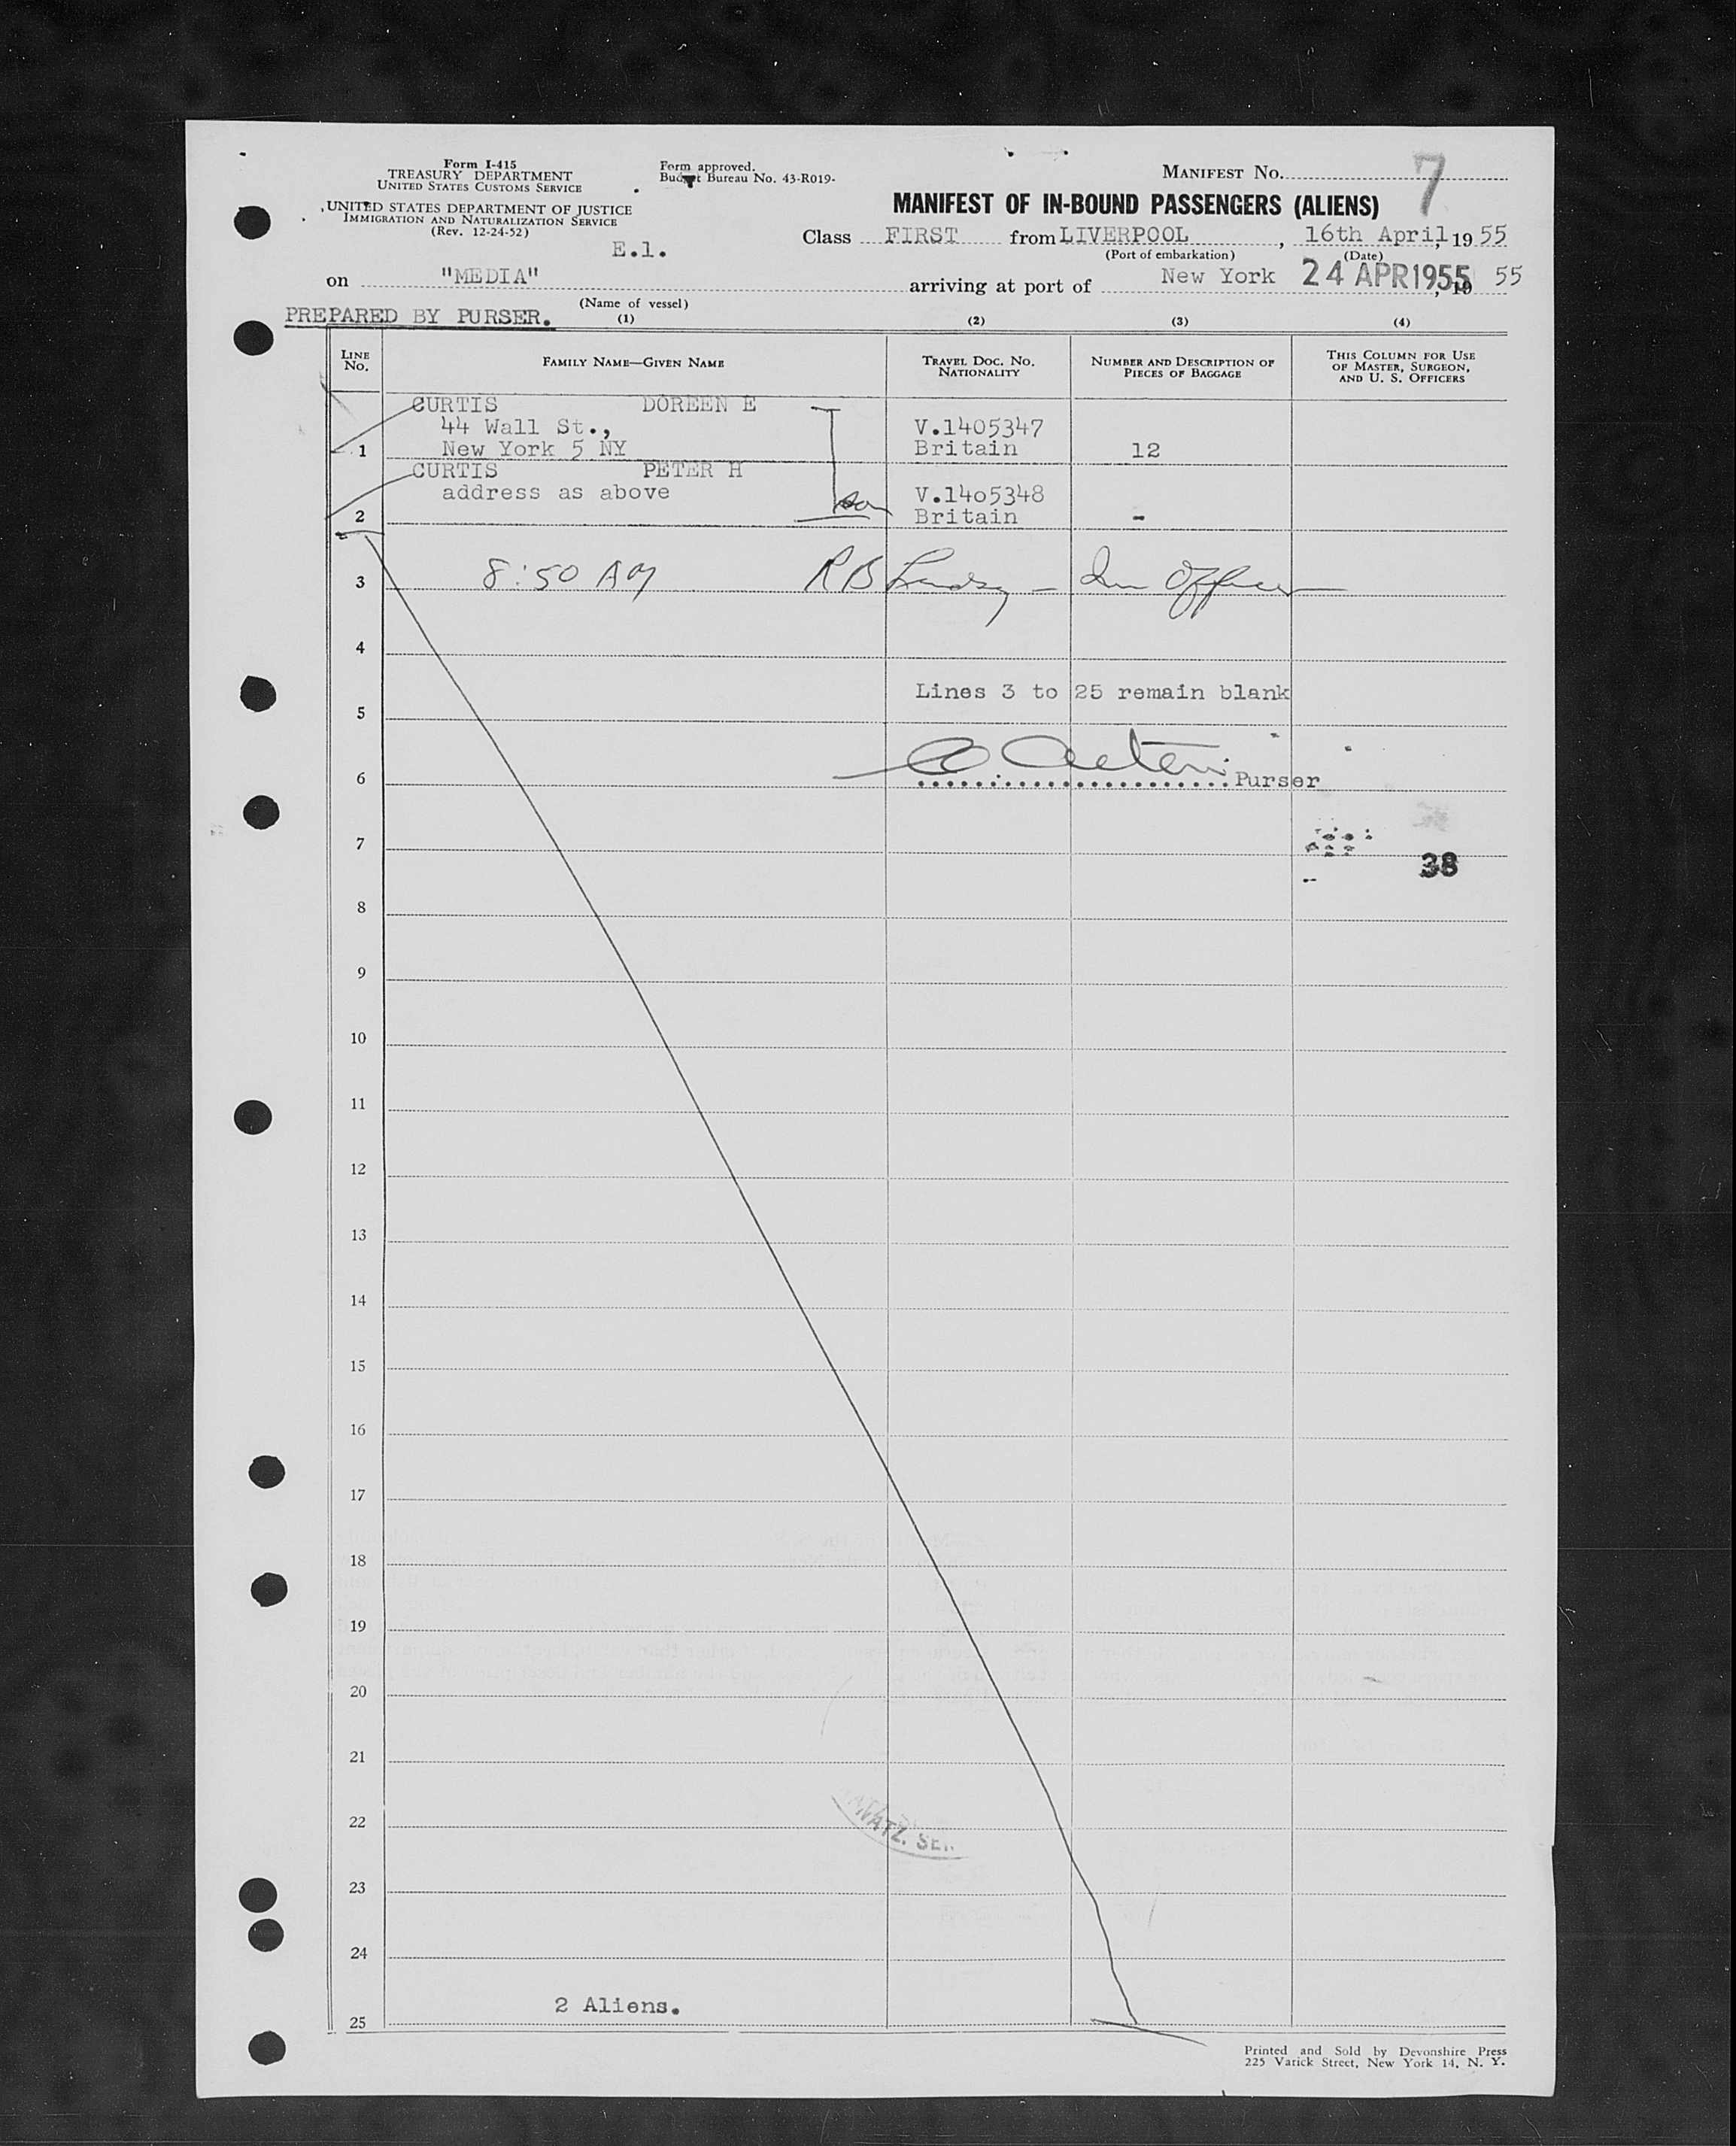 Form I-415
TREASURY DEPARTMENT
UNITED STATES CUSTOMS SERVICE
UNITED STATES DEPARTMENT OF JUSTICE
IMMIGRATION AND NATURALIZATION SERVICE
(Rev. 12-24-52)
Form approved.
Budget Bureau No. 43-R019-
MANIFEST No. 7
MANIFEST OF IN-BOUND PASSENGERS (ALIENS)
E.1.
Class FIRST from LIVERPOOL, 16th April, 19 55
(Port of embarkation) (Date)
on "MEDIA" arriving at port of New York 24 APR 1955, 19 55
(Name of vessel)
PREPARED BY PURSER.
(1) (2) (3) (4)
LINE No. FAMILY NAME—GIVEN NAME TRAVEL DOC. No. NATIONALITY NUMBER AND DESCRIPTION OF PIECES OF BAGGAGE THIS COLUMN FOR USE OF MASTER, SURGEON, AND U. S. OFFICERS
CURTIS DOREEN E
44 Wall St., V.1405347
1 New York 5 NY Britain 12
CURTIS PETER H
address as above son V.14o5348
2 Britain -
3 8:50 AM R B Lindsy - Im Officer
4
Lines 3 to 25 remain blank
5
6 Purser
7
38
8
9
10
11
12
13
14
15
16
17
18
19
20
21
22
NATZ. SE
23
24
2 Aliens.
25
Printed and Sold by Devonshire Press
225 Varick Street, New York 14, N. Y.